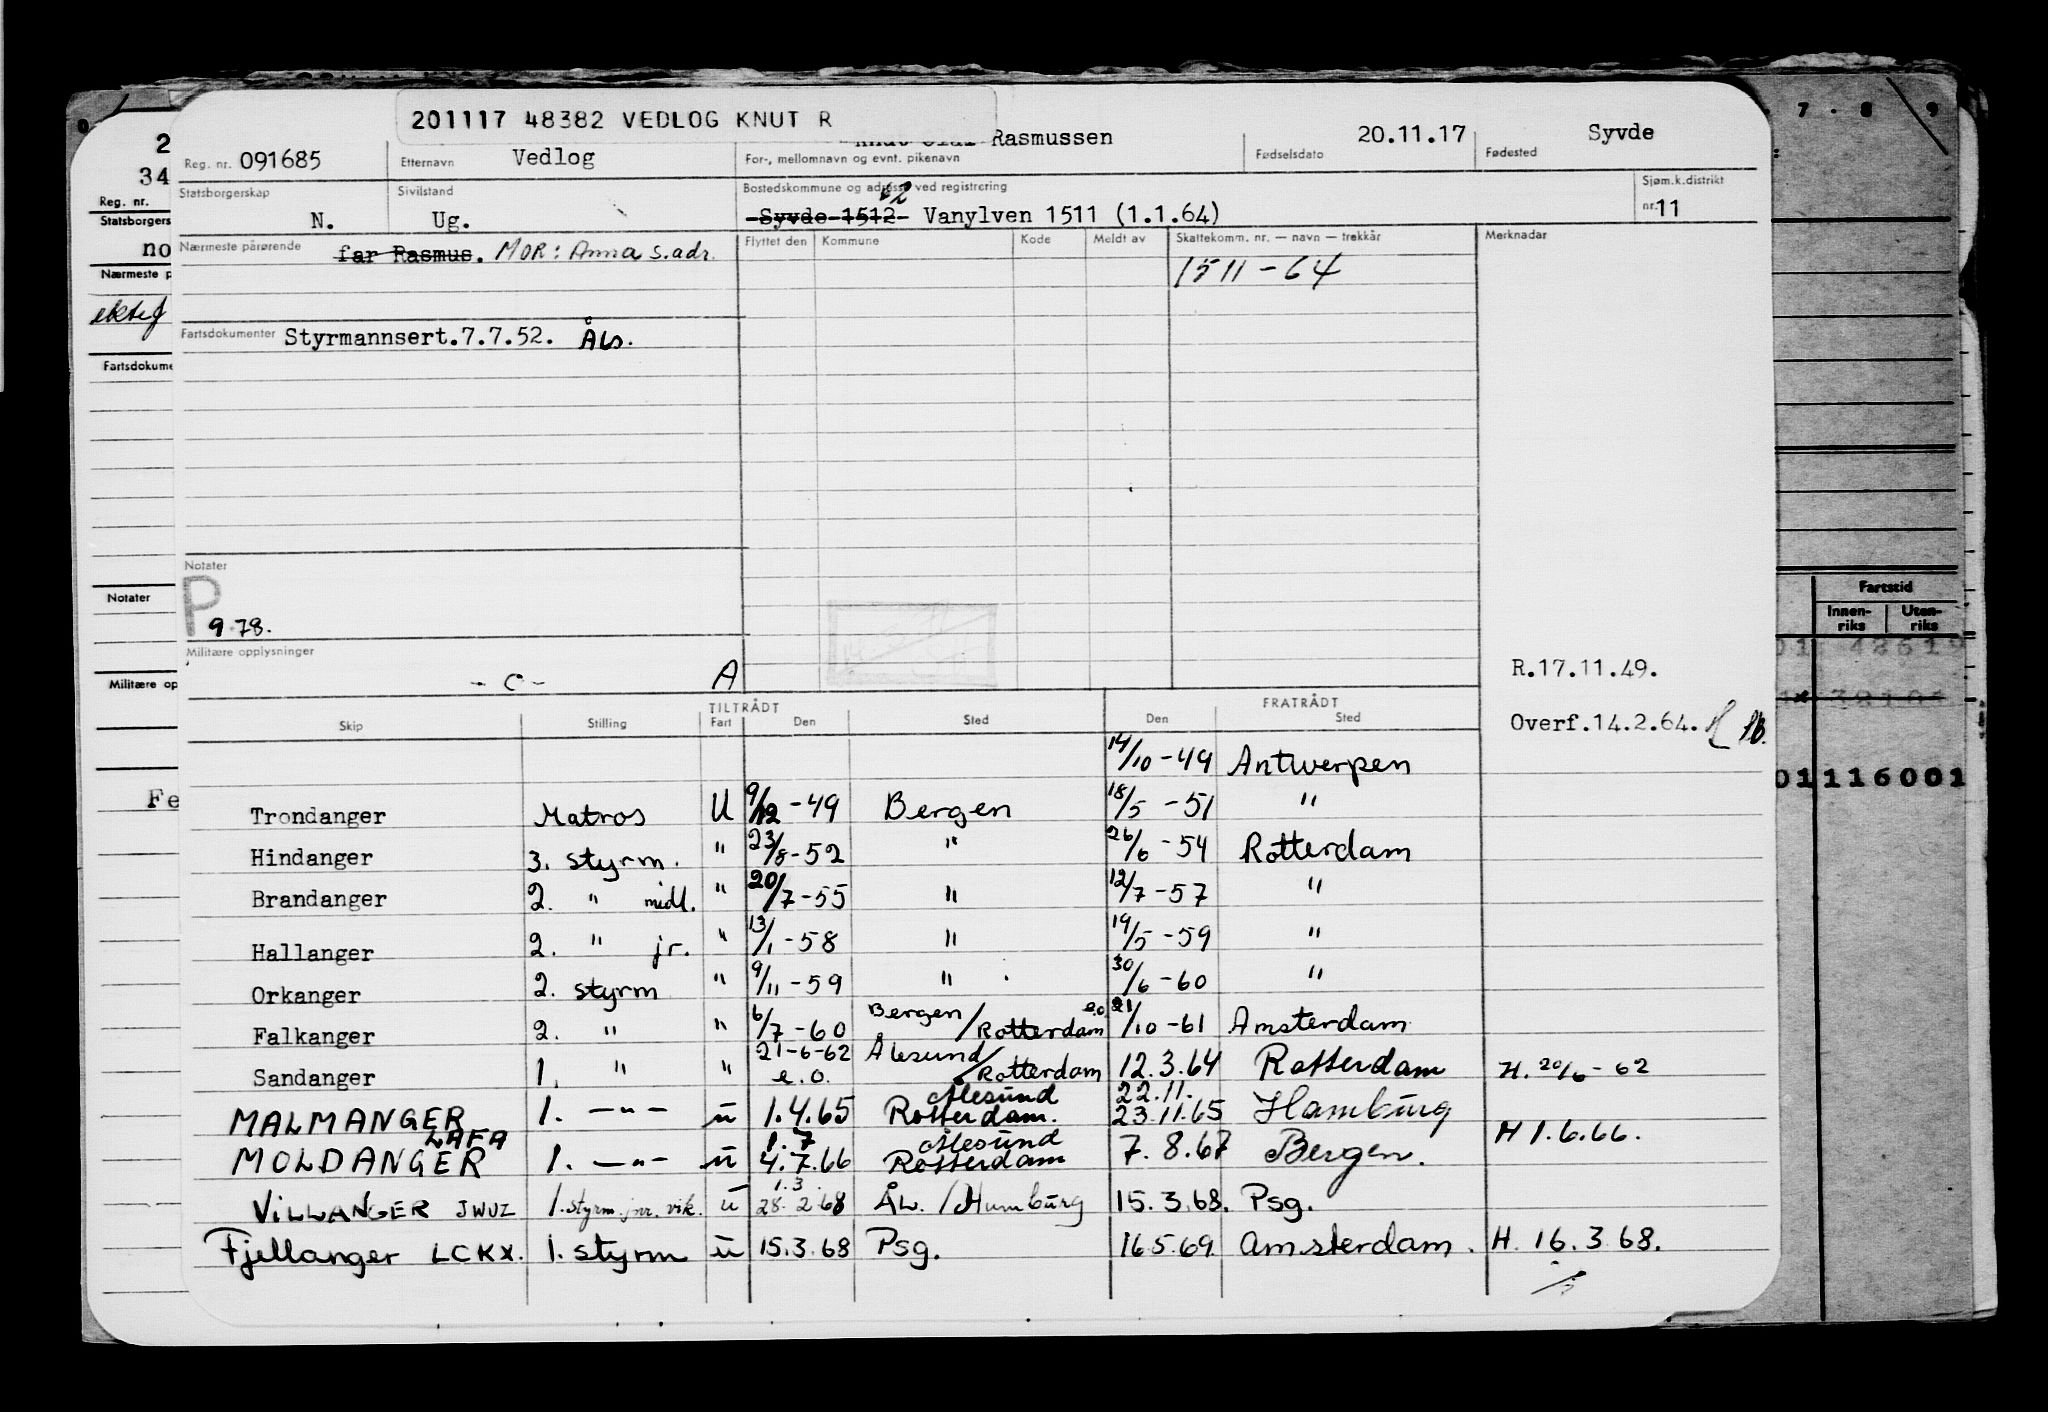 201117 48382 VEDLOG KNUT R
Reg. nr. 091685 Etternavn Vedlog For-, mellomnavn og evnt. pikenavn Rasmussen Fødselsdato 20.11.17 Fødested Syvde
Statsborgerskap N. Sivilstand Ug. Bostedskommune og adresse ved registrering Syvde 1512 Vanylven 1511 (1.1.64) Sjøm.k.distrikt nr. 11
Nærmeste pårørende far Rasmus. MOR: Anna s.adr. Flyttet den Kommune Kode Meldt av Skattekomm. nr. — navn — trekkår Merknadar
1511-64
Fartsdokumenter Styrmannsert.7.7.52. Åls.
Notater
P
9.78.
Militære opplysninger
- C - A
R.17.11.49.
Overf.14.2.64.
TILTRÅDT FRATRÅDT
Skip Stilling Fart Den Sted Den Sted
14/10-49 Antwerpen
Trondanger Matros U 9/12-49 Bergen 18/5-51 "
Hindanger 3. styrm. " 23/8-52 " 26/6-54 Rotterdam
Brandanger 2. " midl. " 20/7-55 " 12/7-57 "
Hallanger 2. " jr. " 13/1-58 " 19/5-59 "
Orkanger 2. styrm " 9/11-59 " 30/6-60 "
Falkanger 2. " " 6/7-60 Bergen/Rotterdam e.o 21/10-61 Amsterdam
Sandanger 1. " " 21-6-62 e.o. Ålesund/Rotterdam 12.3.64 Rotterdam H. 20/6-62
MALMANGER 1. -"- u 1.4.65 Ålesund Rotterdam. 22.11. 23.11.65 Hamburg
MOLDANGER LAFA 1. -"- u 1.7 4.7.66 Ålesund Rotterdam 7.8.67 Bergen. H 1.6.66.
VILLANGER JWUZ 1. styrm. jnr. vik. u 1.3. 28.2.68 ÅL./Hamburg 15.3.68. Psg.
Fjellanger LCKX. 1. styrm u 15.3.68 Psg. 16.5.69 Amsterdam. H. 16.3.68.
2
34
Reg. nr.
Statsborgers
no
Nærmeste p
ektef
Fartsdokume
Notater
Militære op
Fe
7 - 8 9
Fartstid
Innen-riks Uten-riks
01116001